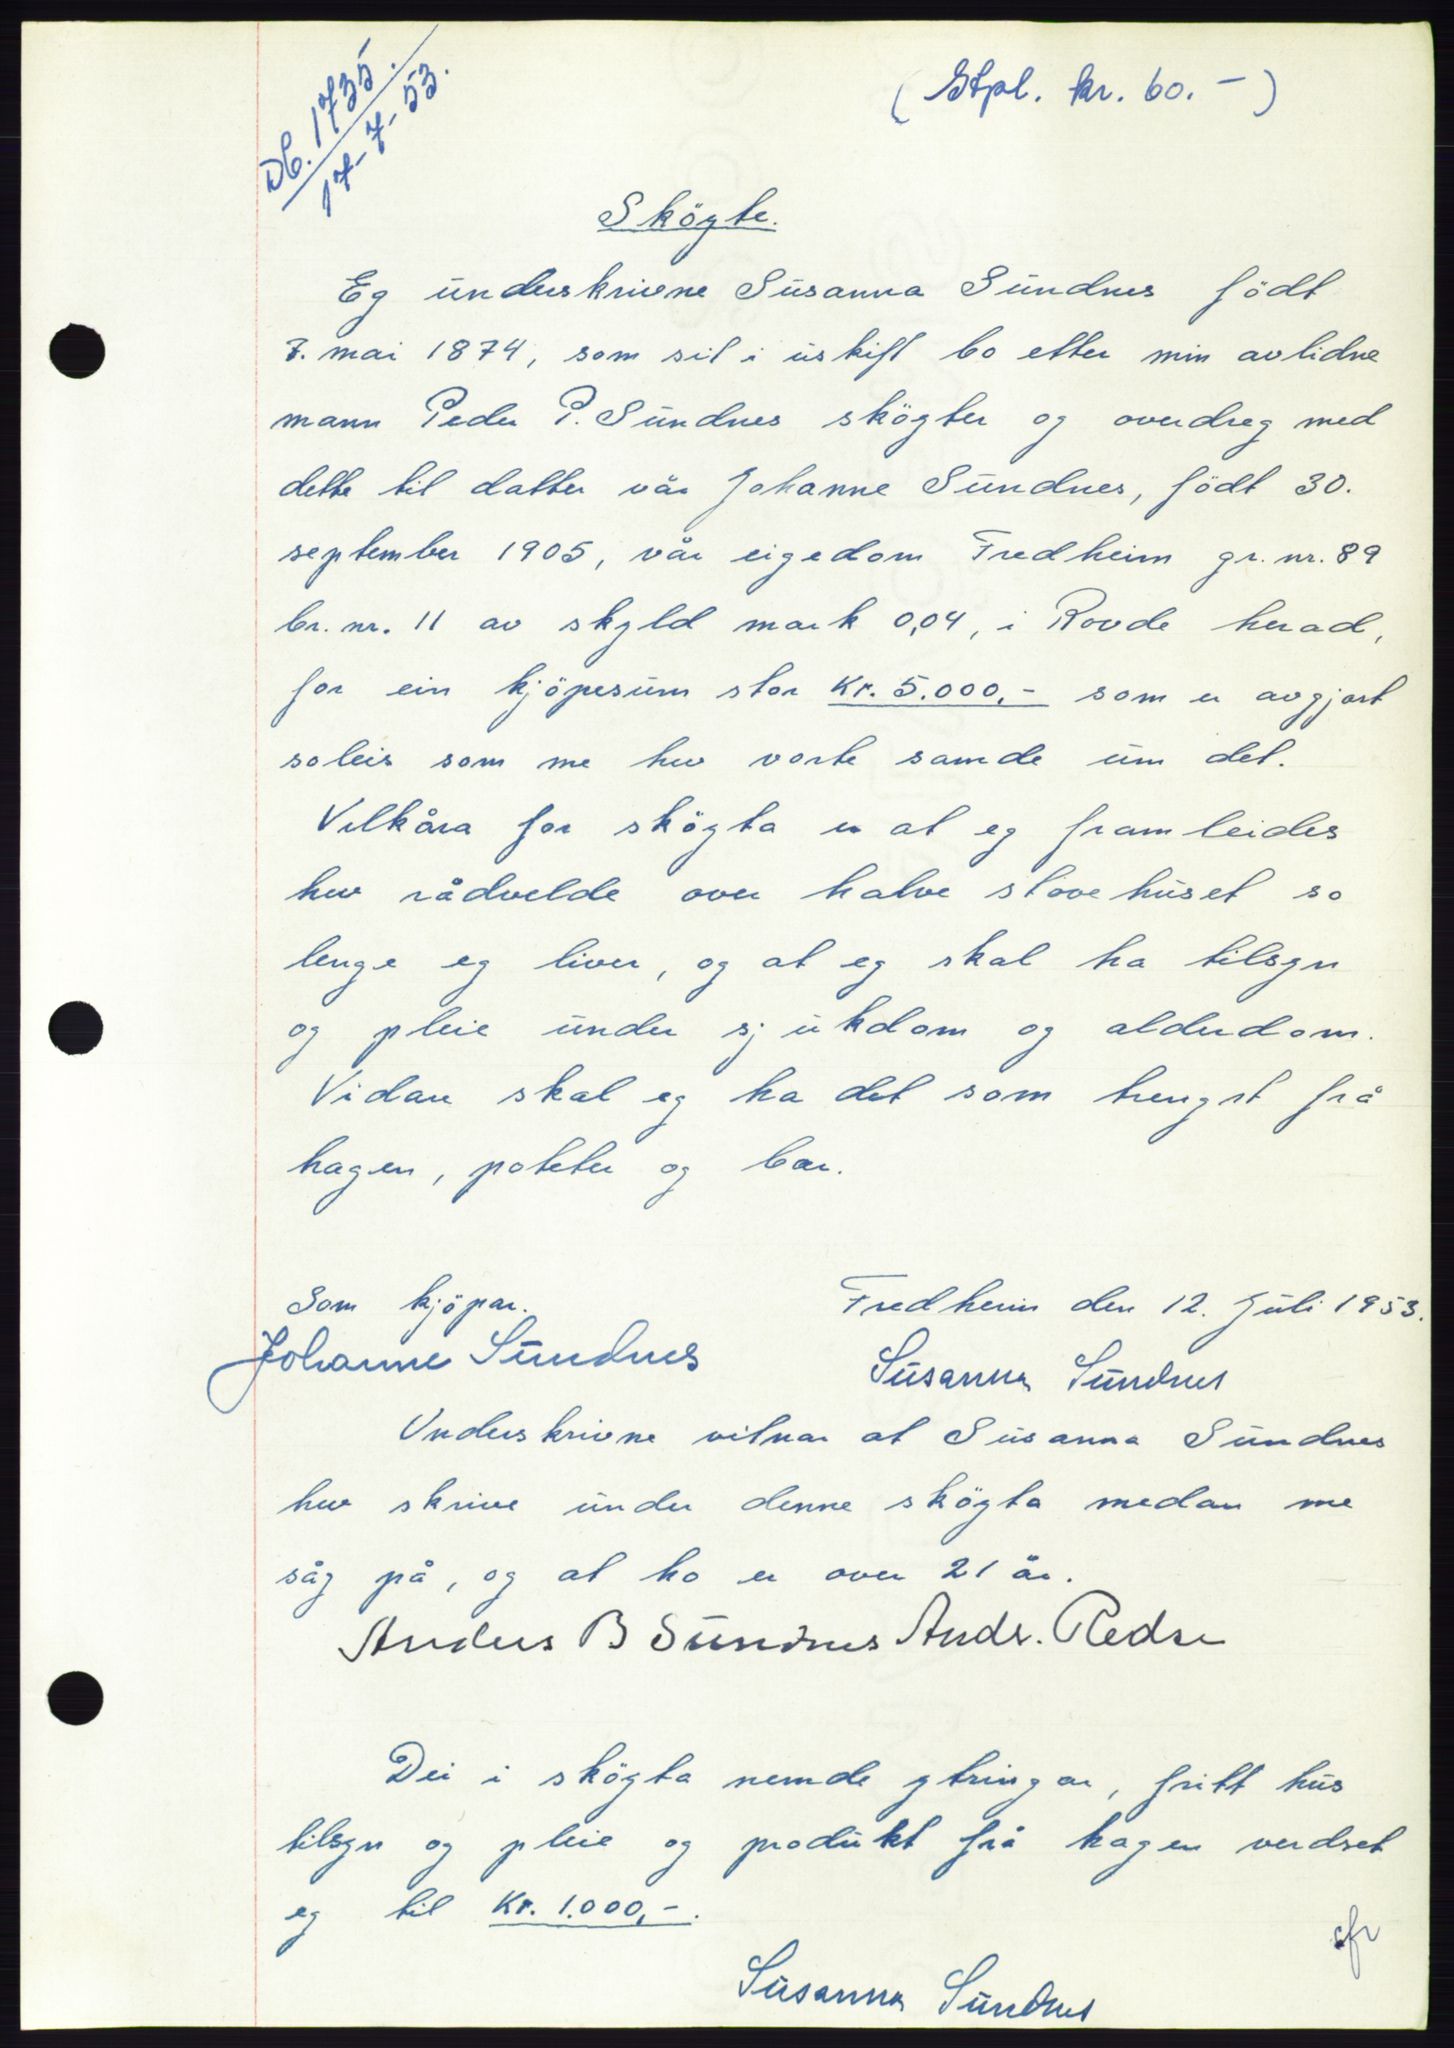 Db. 1735.
17-7-53.
(Stpl. kr. 60.-)
Sköyte.
Eg underskrivne Susanna Sundnes födt
7. mai 1874, som sit i uskift bo etter min avlidne
mann Peder P. Sundnes sköyter og overdreg med
dette til datter vår Johanne Sundnes, födt 30.
september 1905, vår eigedom Fredheim gr. nr. 89
br. nr. 11 av skyld mark 0,04, i Rovde herad,
for ein kjöpesum stor Kr. 5.000,- som er avgjort
soleis som me hev vorte samde um det.
Vilkåra for sköyta er at eg framleides
hev rådvelde over halve stovehuset so
lenge eg liver, og at eg skal ha tilsyn
og pleie under sjukdom og alderdom.
Vidare skal eg ha det som trengst frå
hagen, poteter og bær.
Som kjöpar.
Fredheim den 12. Juli 1953.
Johanne Sundnes
Susanna Sundnes
Underskrivne vitnar at Susanna Sundnes
hev skrive under denne sköyta medan me
såg på, og at ho er over 21 år.
Anders B Sundnes Andr.
Dei i sköyta nemde ytringar, fritt hus
tilsyn og pleie og produkt frå hagen verdset
eg til Kr. 1.000,-.
Susanna Sundnes